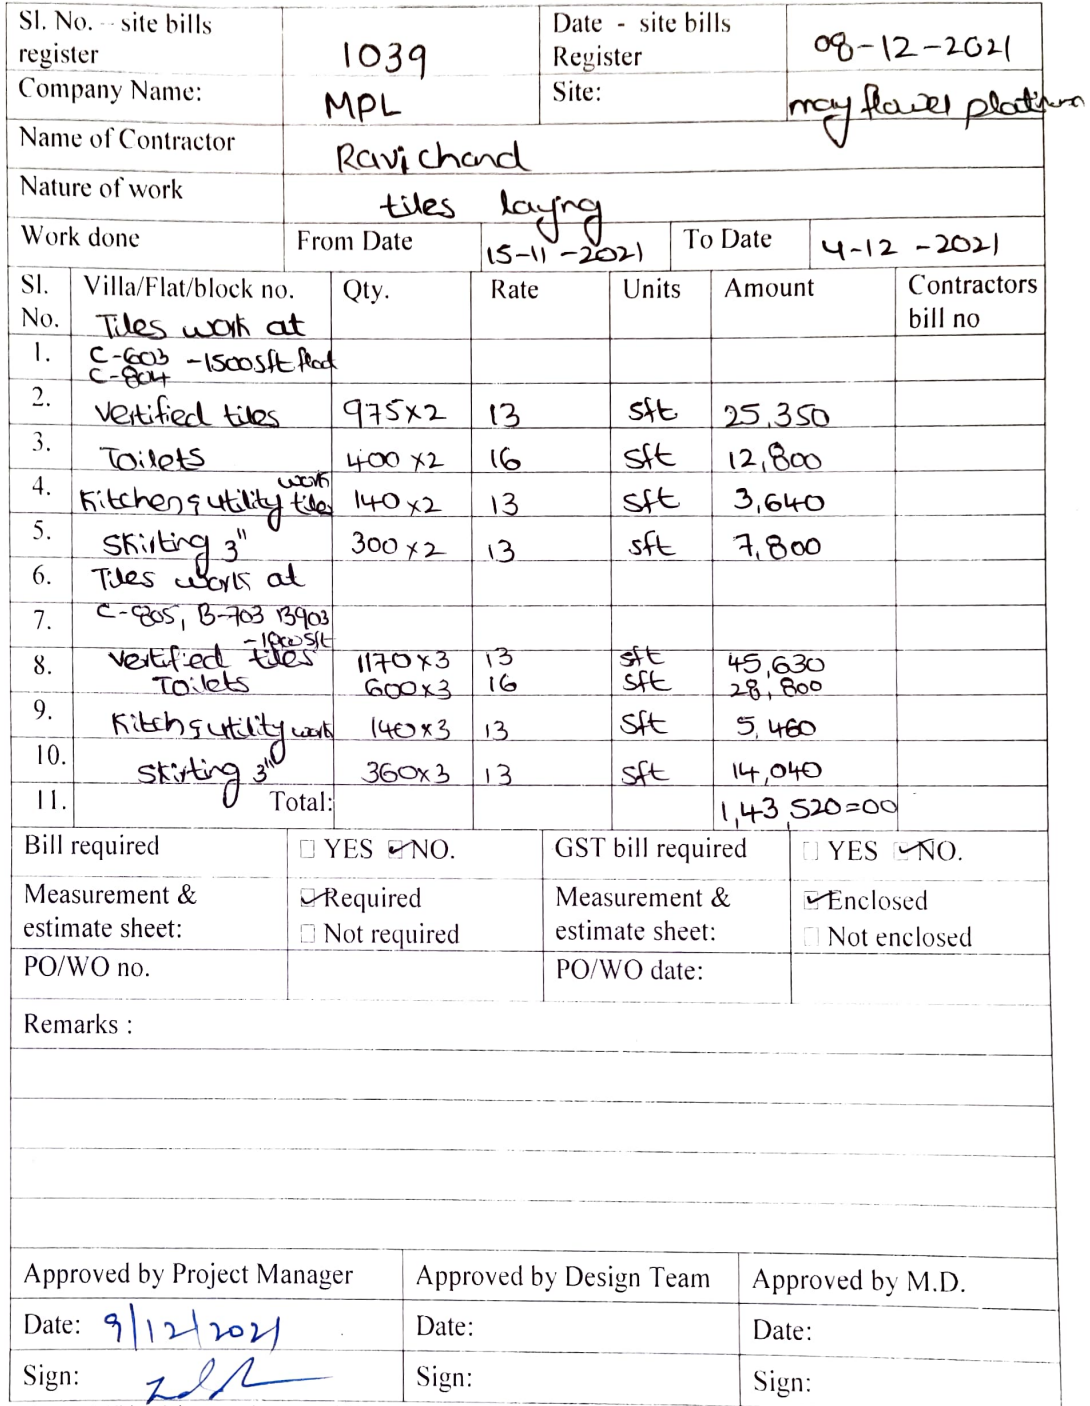 Sl. No. - site bills register 1039 Date - site bills Register 08-12-2021
Company Name: MPL Site: may flower platinum
Name of Contractor Ravi chand
Nature of work tiles layng
Work done From Date 15-11-2021 To Date 4-12-2021
Sl. No. Villa/Flat/block no. Qty. Rate Units Amount Contractors bill no
Tiles work at
1. C-603 -1500sft
C-804
2. Vertified tiles 975x2 13 sft 25,350
3. Toilets 400x2 16 sft 12,800
4. Kitchen & utility tiles work 140x2 13 sft 3,640
5. Skirting 3" 300x2 13 sft 7,800
6. Tiles work at
7. C-805, B-703 B903
8. Vertified tiles 1170x3 13 sft 45,630
Toilets 600x3 16 sft 28,800
9. Kitch & utility work 140x3 13 sft 5,460
10. Skirting 3" 360x3 13 sft 14,040
11. Total: 1,43,520=00
Bill required YES NO. GST bill required YES NO.
Measurement & estimate sheet: Required Measurement & estimate sheet: Enclosed
Not required Not enclosed
PO/WO no. PO/WO date:
Remarks :
Approved by Project Manager Approved by Design Team Approved by M.D.
Date: 9/12/2021 Date: Date:
Sign: Sign: Sign: